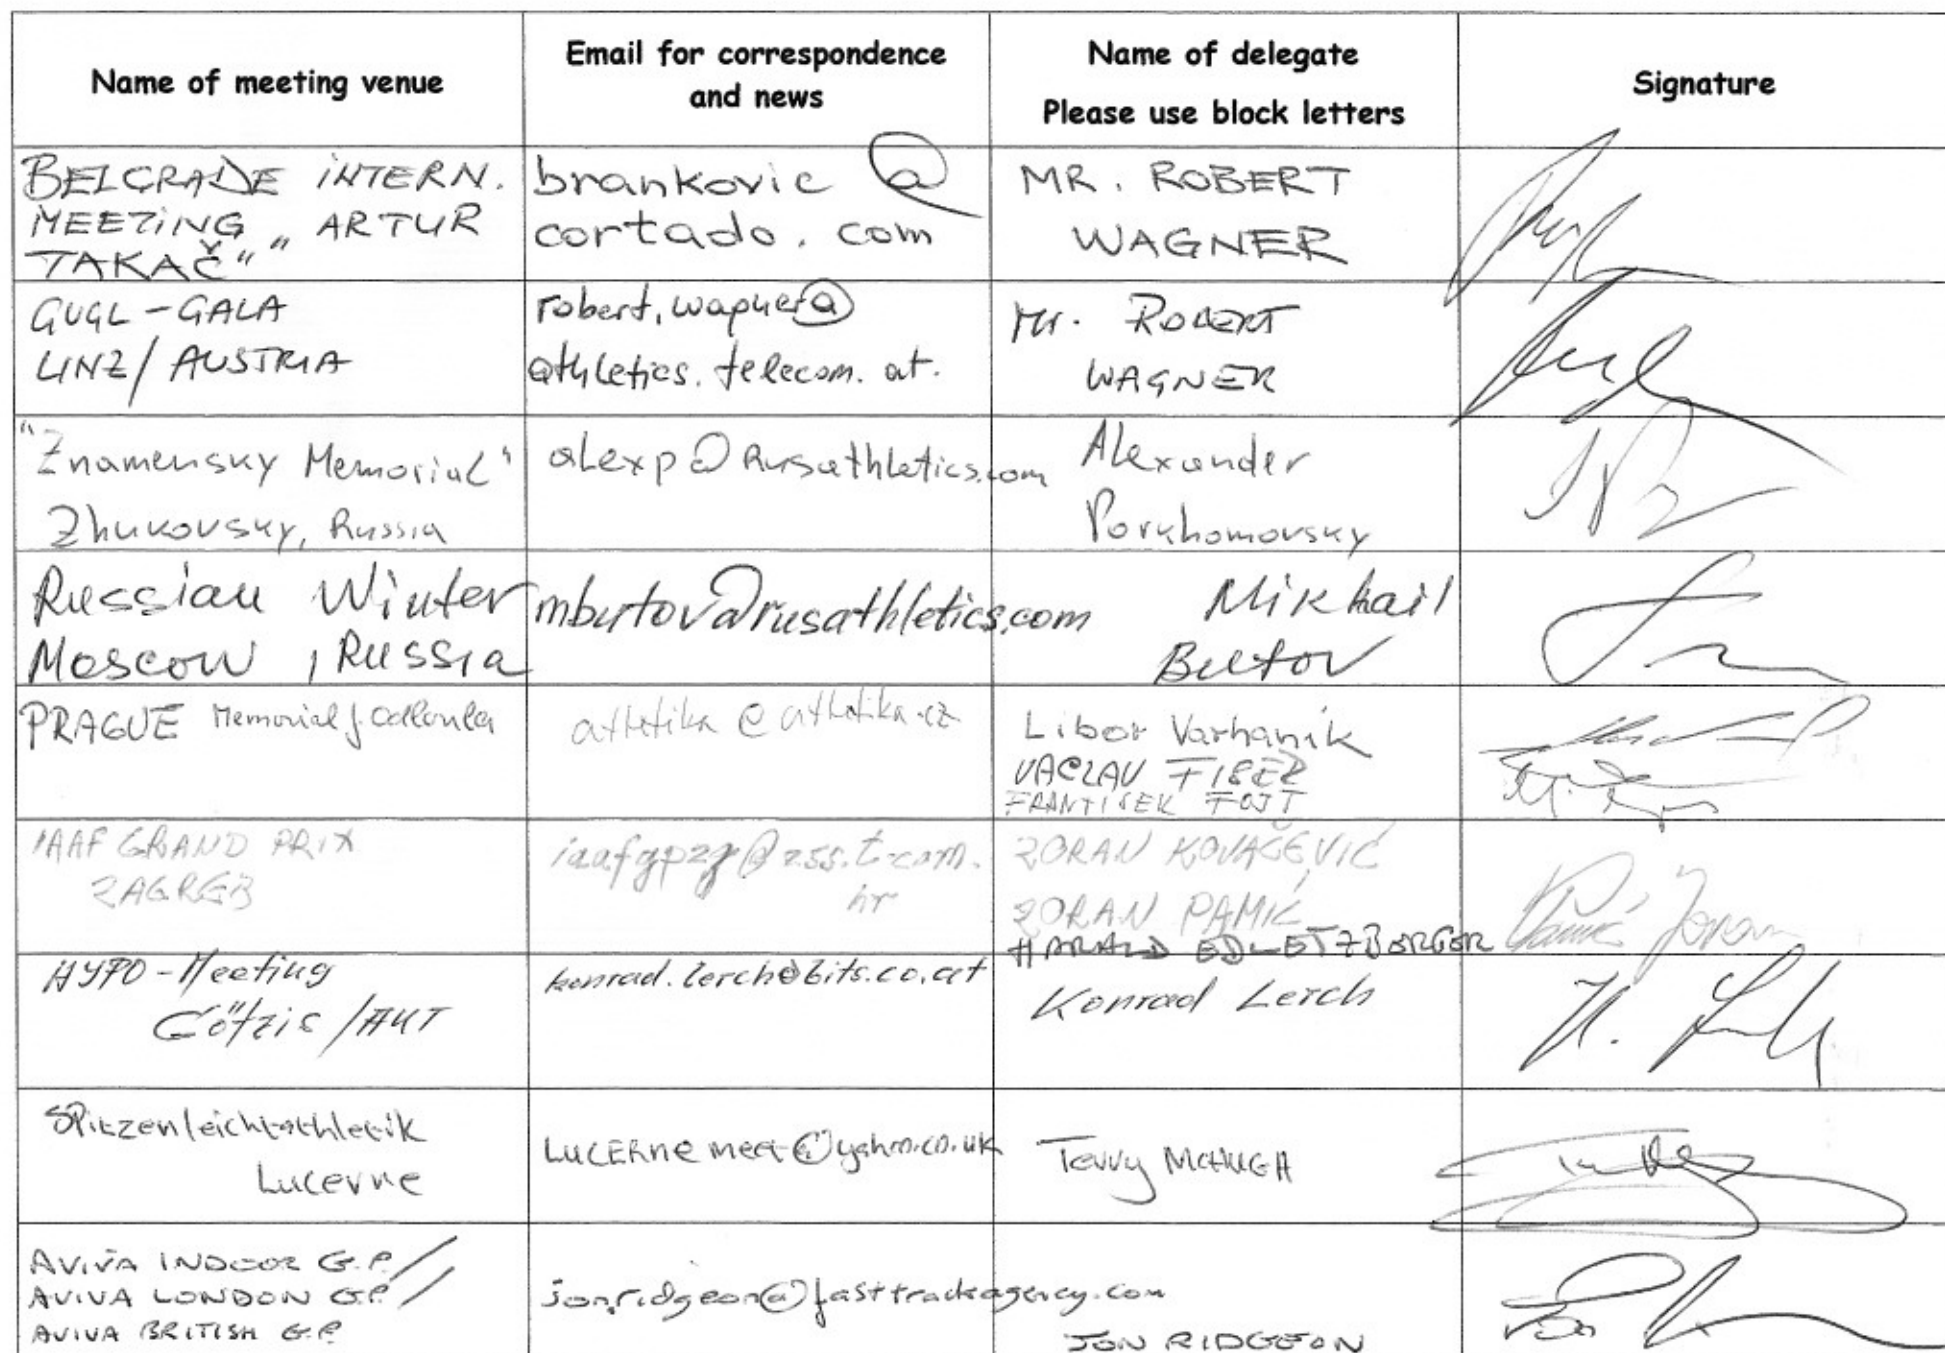 Name of meeting venue
Email for correspondence
and news
Name of delegate
Please use block letters
Signature
BELGRADE INTERN.
MEETING „ARTUR
TAKAČ“
brankovic @
cortado.com
MR. ROBERT
WAGNER
GUGL-GALA
LINZ/AUSTRIA
robert.wagner@
athletics.telecom.at.
Mr. ROBERT
WAGNER
"Znamensky Memorial"
Zhukovsky, Russia
alexp@rusathletics.com
Alexander
Porkhomovsky
Russian Winter
Moscow, Russia
mbutov@rusathletics.com
Mikhail
Butov
PRAGUE Memorial J.
atletika@atletika.cz
Libor Varhanik
VACLAV FISER
FRANTISEK FOJT
IAAF GRAND PRIX
ZAGREB
iaafgpzg@zss.t-com.
hr
ZORAN KOVAČEVIĆ
ZORAN PAMIĆ
HARALD EDLETZBERGER
HYPO-Meeting
Götzis/AUT
konrad.lerch@bits.co.at
Konrad Lerch
K. Lerch
Spitzenleichtathletik
Lucerne
LUCERNEmeet@yahoo.co.uk
Terry McHUGH
AVIVA INDOOR G.P.
AVIVA LONDON G.P.
AVIVA BRITISH G.P.
jon.ridgeon@fasttrackagency.com
JON RIDGEON